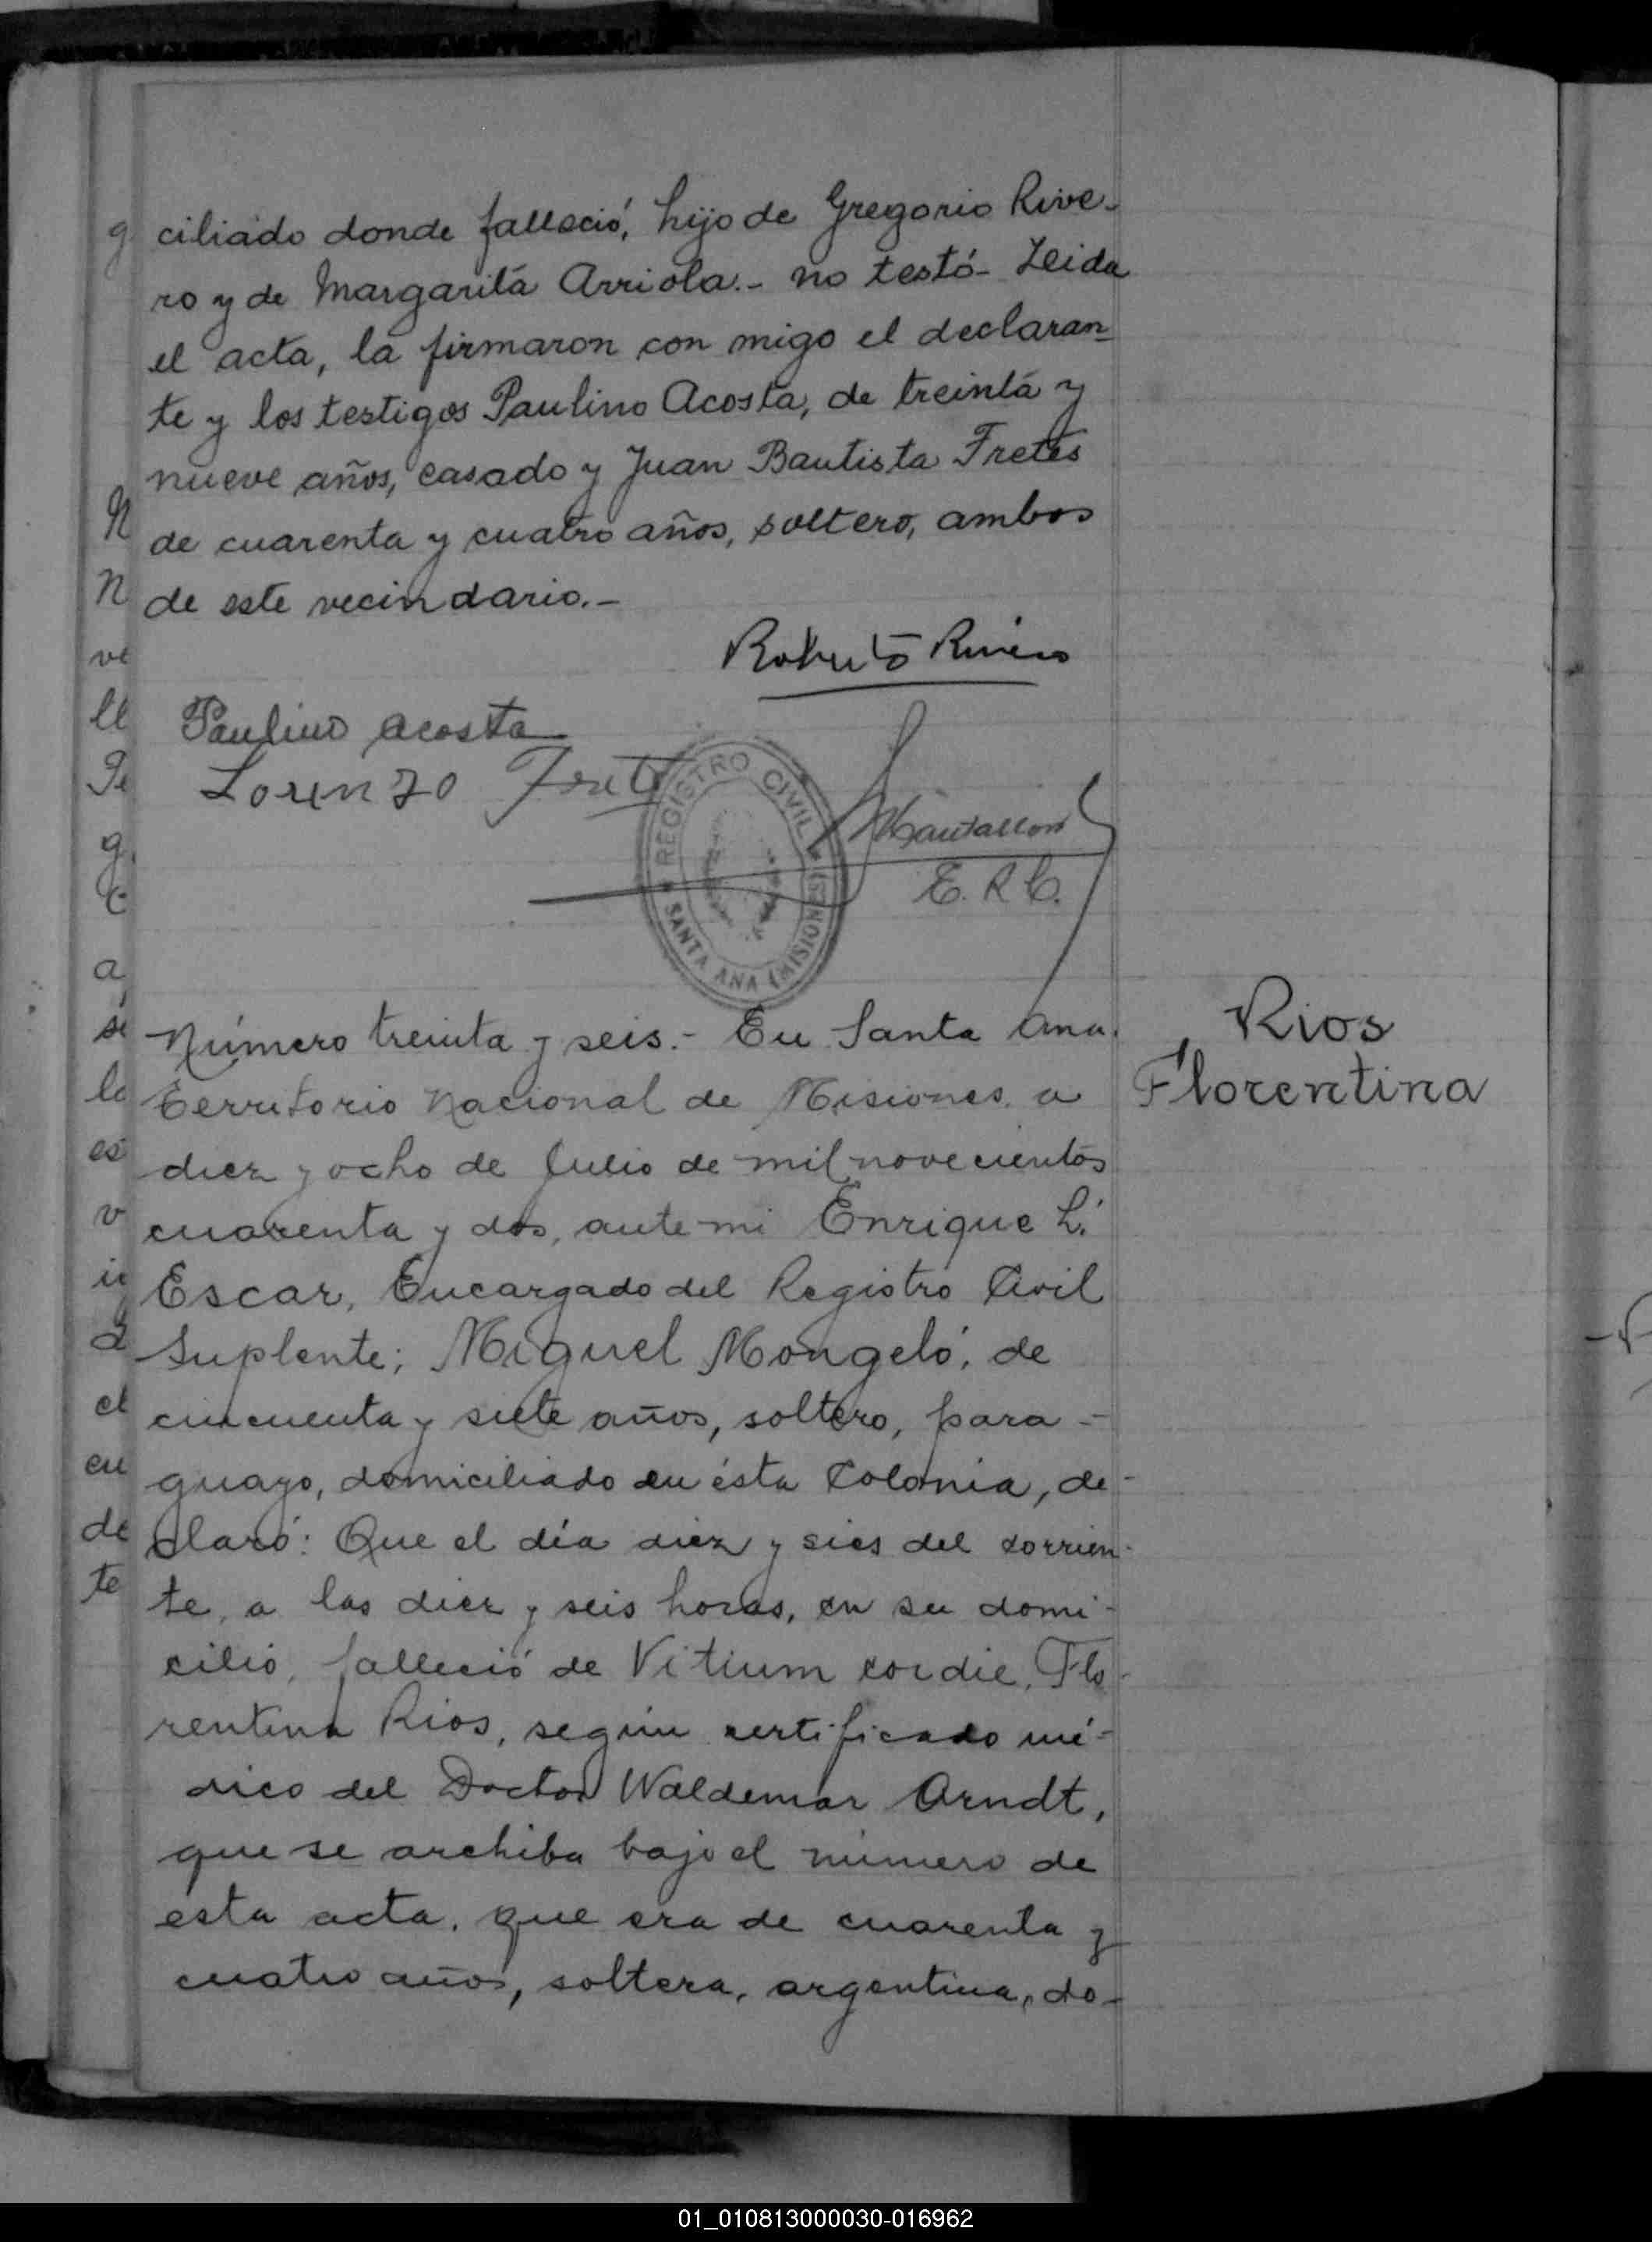 ciliado donde falleció, hijo de Gregorio Rive-
ro y de Margarita Arriola.- no testó- Leida
el acta, la firmaron con migo el declaran-
te y los testigos Paulino Acosta, de treinta y
nueve años, casado y Juan Bautista Fretes
de cuarenta y cuatro años, soltero, ambos
de este vecindario.-
Roberto Rivero
Paulino Acosta
Lorenzo
REGISTRO CIVIL
SANTA ANA (MISIONES)
E. R. C.
Número treinta y seis.- En Santa Ana.
Territorio Nacional de Misiones, a
diez y ocho de Julio de mil novecientos
cuarenta y dos, ante mi Enrique L.
Escar, Encargado del Registro Civil
Suplente; Miguel Mongeló, de
cincuenta y siete años, soltero, para-
guayo, domiciliado en ésta Colonia, de-
claró: Que el día diez y sies del corrien-
te, a las diez y seis horas, en su domi-
cilio, falleció de Vitium cordie, Flo-
rentina Rios, según certificado mé-
dico del Doctor Waldemar Arndt,
que se archiba bajo el número de
esta acta. que era de cuarenta y
cuatro años, soltera, argentina, do-
Rios
Florentina
g
N
n
ve
ll
Pe
g.
C
a
si
lo
es
v
el
en
de
te
01_010813000030-016962